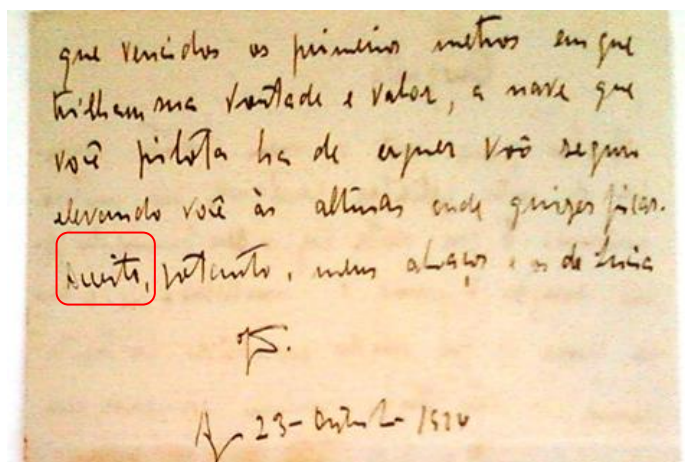 que vencidos os primeiros metros em que
trilham sua vontade e valor, a nave que
você pilota ha de erguer vôo seguro
elevando você às alturas onde quizer ficar.
Aceite, portanto, meus abraços e os de Lucia
23 - Outubro - 19